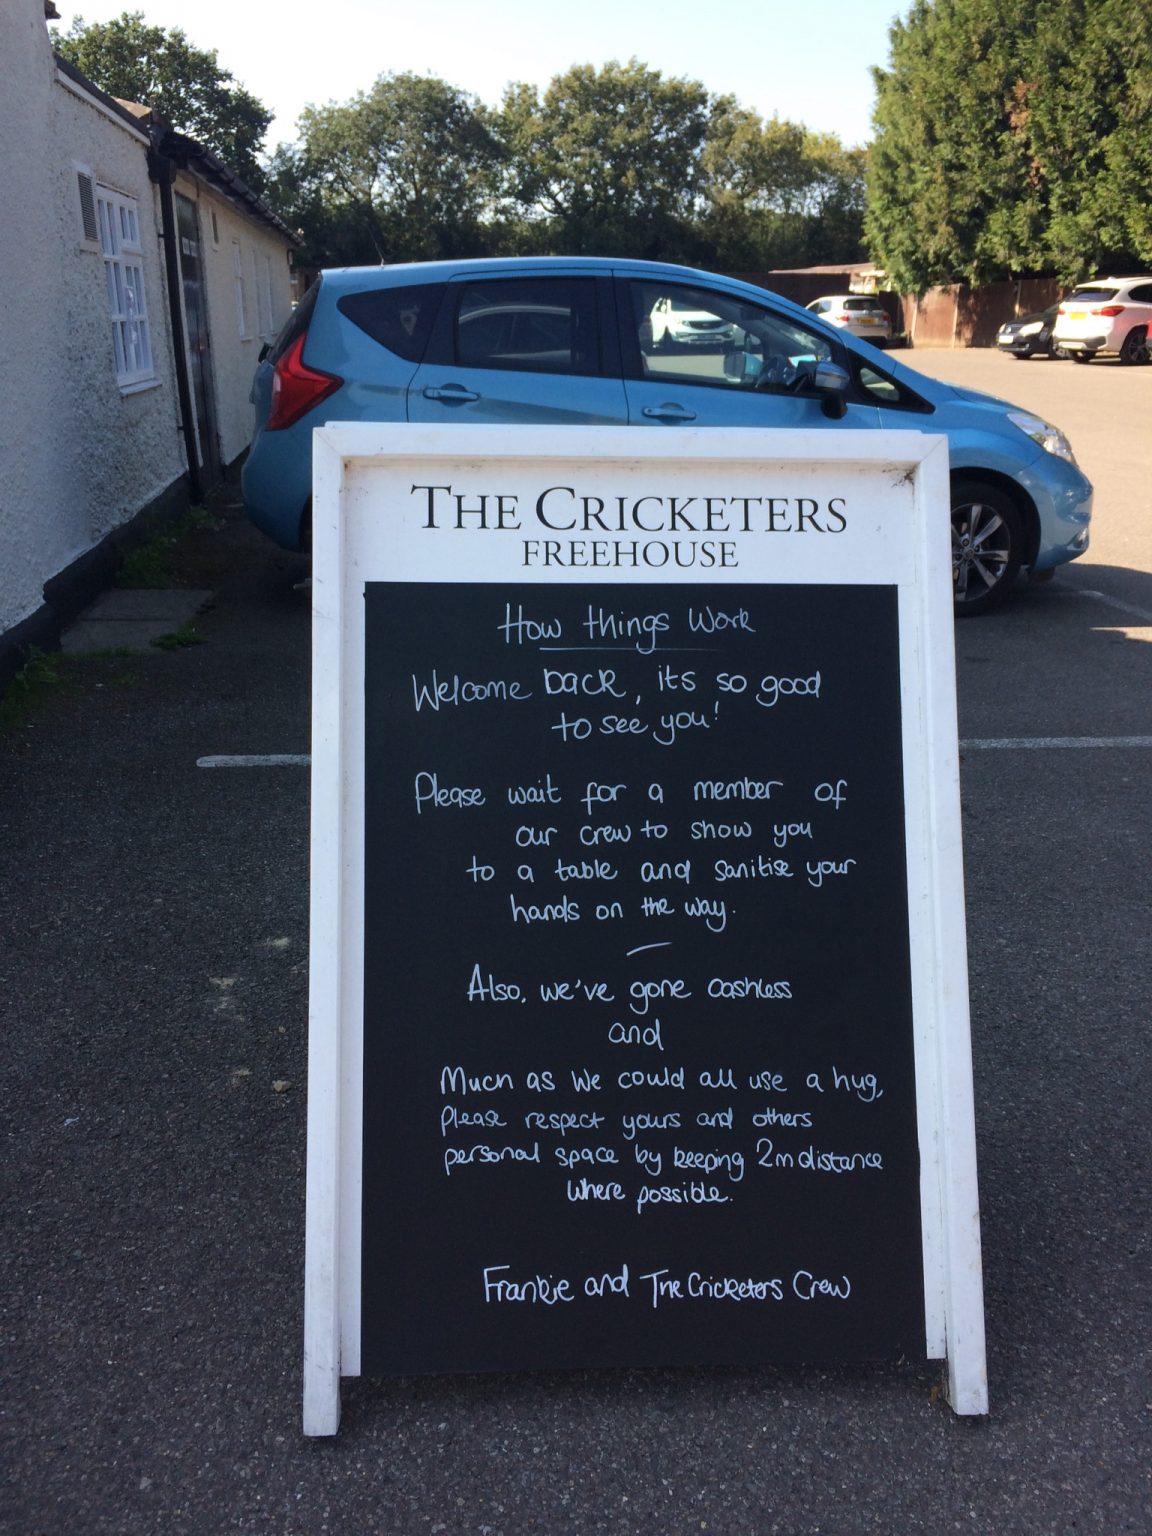 THE CRICKETERS
FREEHOUSE
How things Work
Welcome back, its so good
to see you!
Please wait for a member of
our crew to show you
to a table and sanitise your
hands on the way.
Also, we've gone cashless
and
Much as we could all use a hug,
please respect yours and others
personal space by keeping 2m distance
where possible.
Frankie and The Cricketers Crew